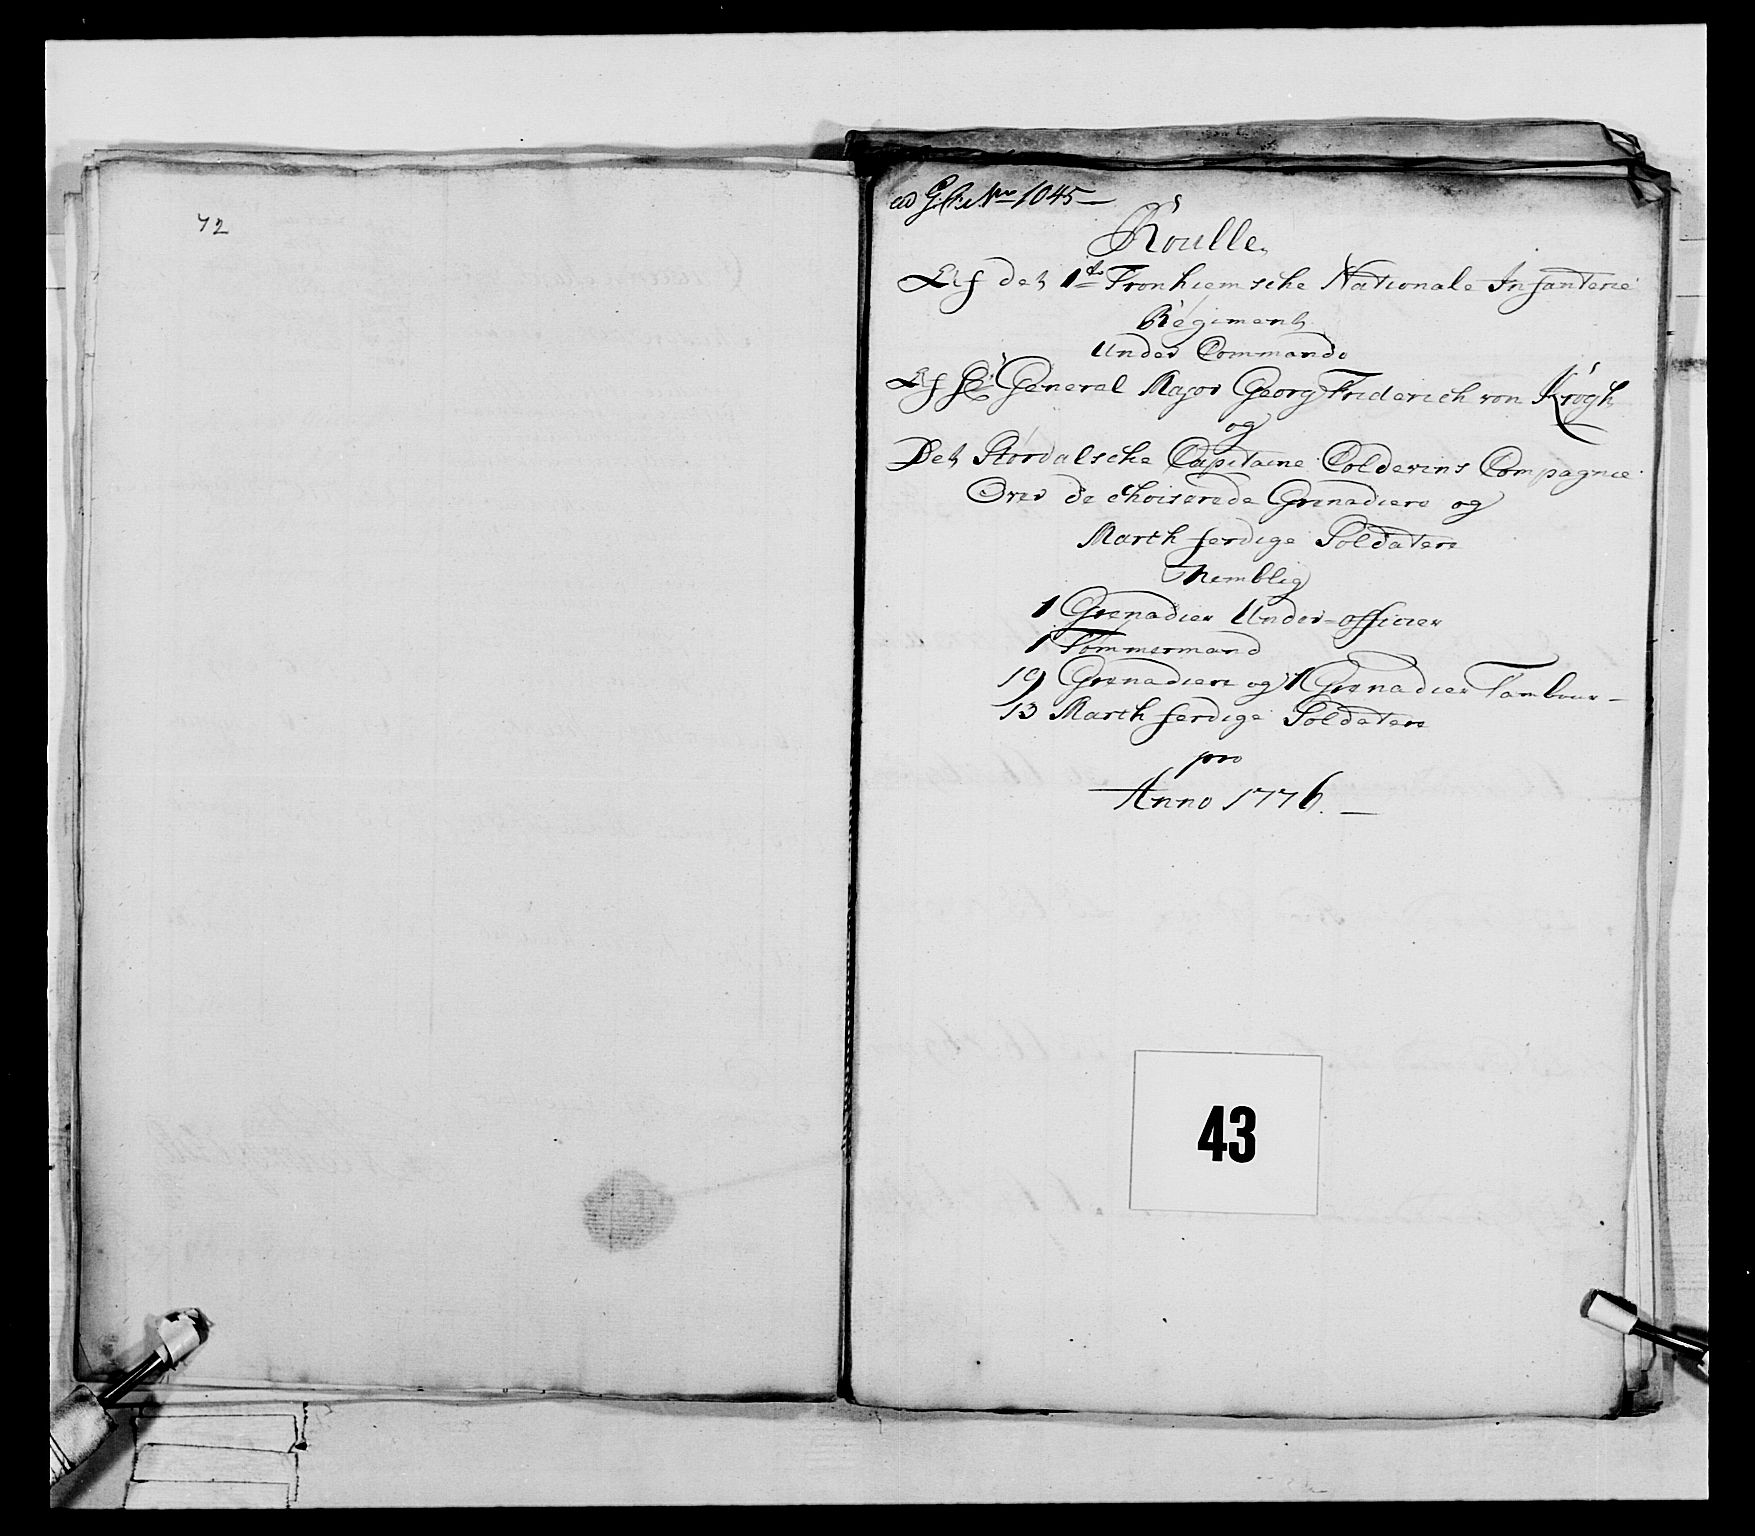 72
ad G: C: No 1045 —
Roulle
Af det 1te Tronhiemsche Nationale Infanterie
Regiment
Under Commando
Af Hr General Major Georg Friderich von Krogh
og
Det Størdalsche Capitaine Coldevins Compagnie
Over de choiserede Grenadiere og
March ferdige Soldatere
Nemblig
1 Grenadier Under-officier
1 Tømmermand
19 Grenadiere og 1 Grenadier Tambour —
13 March ferdige Soldatere
pro
Anno 1776. —
43